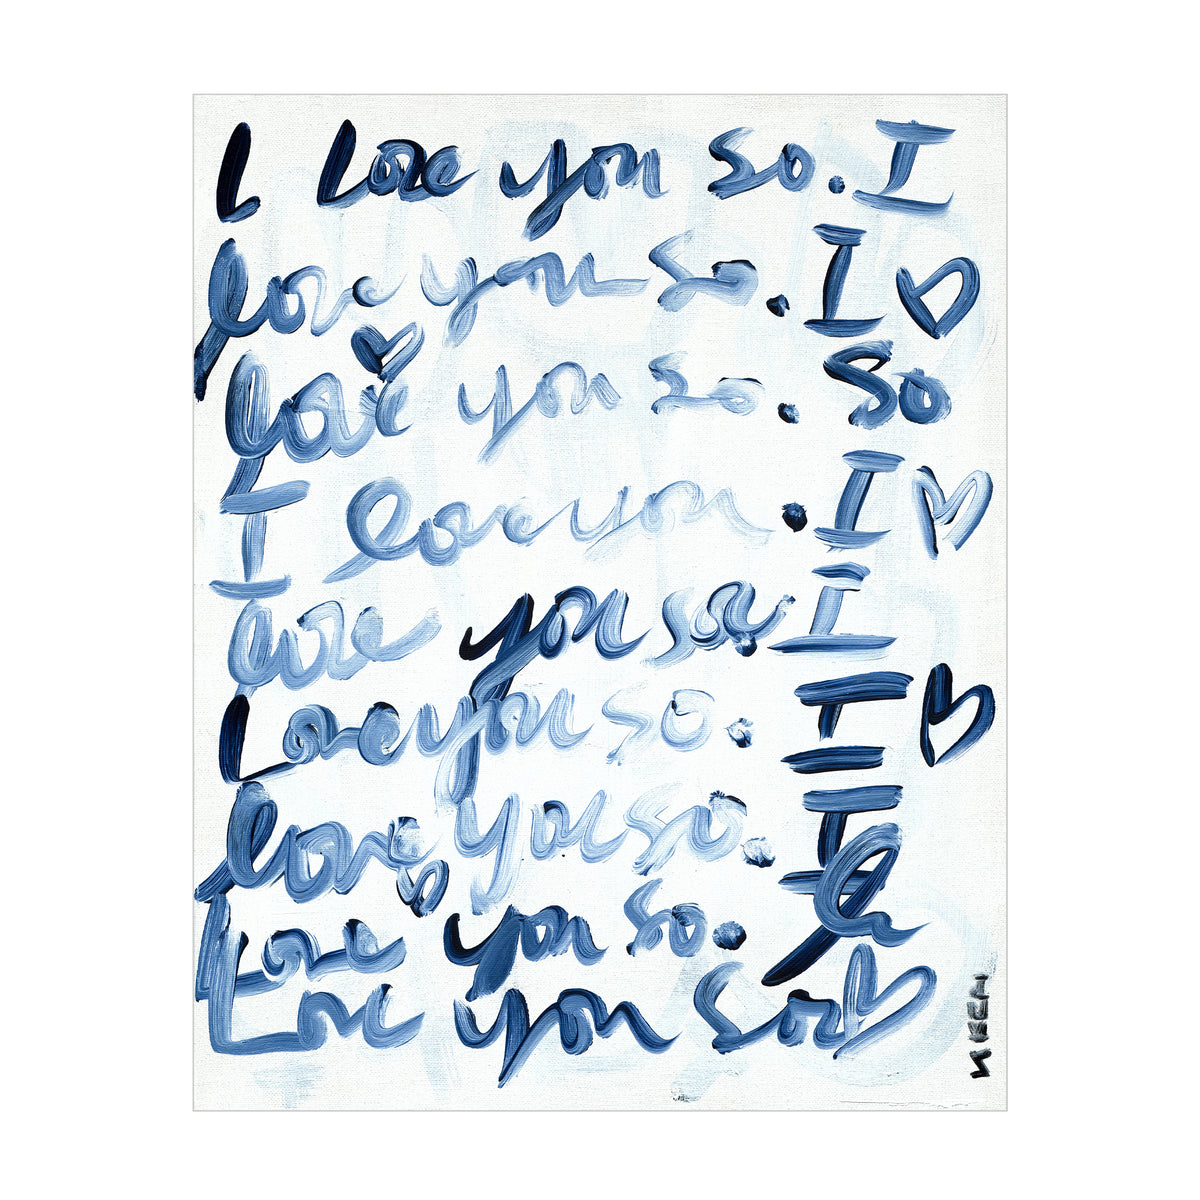 I Love you so. I
love you so. I
love you so. So
I love you. I
love you so. I
Love you so. I
love you so. I
Love you so.
Love you So